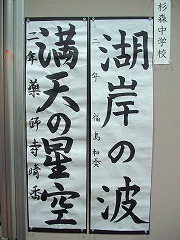 杉森中学校
湖岸の波
二年 福島和奏
満天の星空
二年 薬師寺崎香